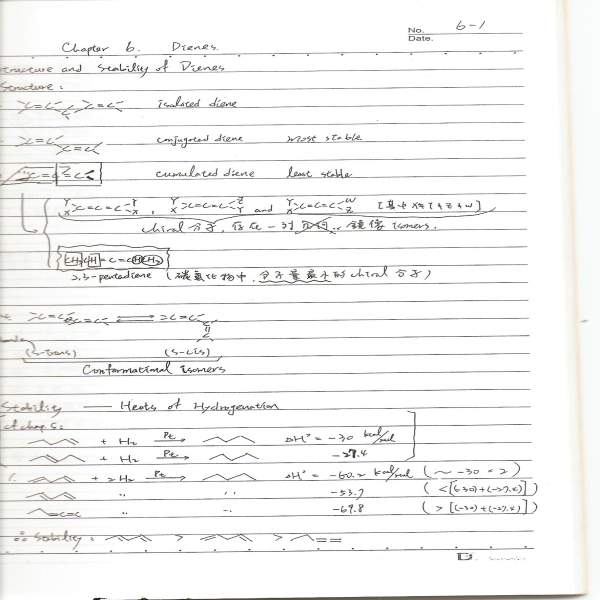 No. 6-1
Date.
Chapter 6. Dienes.
Structure and Stability of Dienes
Structure:
>C=C< >C=C< isolated diene
>C=C< >C=C< conjugated diene Most stable
C=C=C< cumulated diene least stable
Y X >C=C=C< Y X , Y X >C=C=C< Z Y and Y X >C=C=C< W Z [其中 X≠Y≠Z≠W]
chiral 分子, 存在一对 镜像 isomers.
CH3CH=C=CHCH3
2,3-pentadiene (碳氢化物中, 分子量最小的 chiral 分子)
>C=C< >C=C< ⇌ >C=C<
(S-trans) (S-cis)
Conformational isomers
Stability — Heats of Hydrogenation
of chap 5:
+ H2 Pt → ΔH° = -30 kcal/mol
+ H2 Pt → -27.4
+ 2H2 Pt → ΔH° = -60.2 kcal/mol (~ -30 × 2)
" " -53.7 (< [(-30)+(-27.4)])
=C=C " -69.8 (> [(-30)+(-27.4)])
∴ Stability: > >